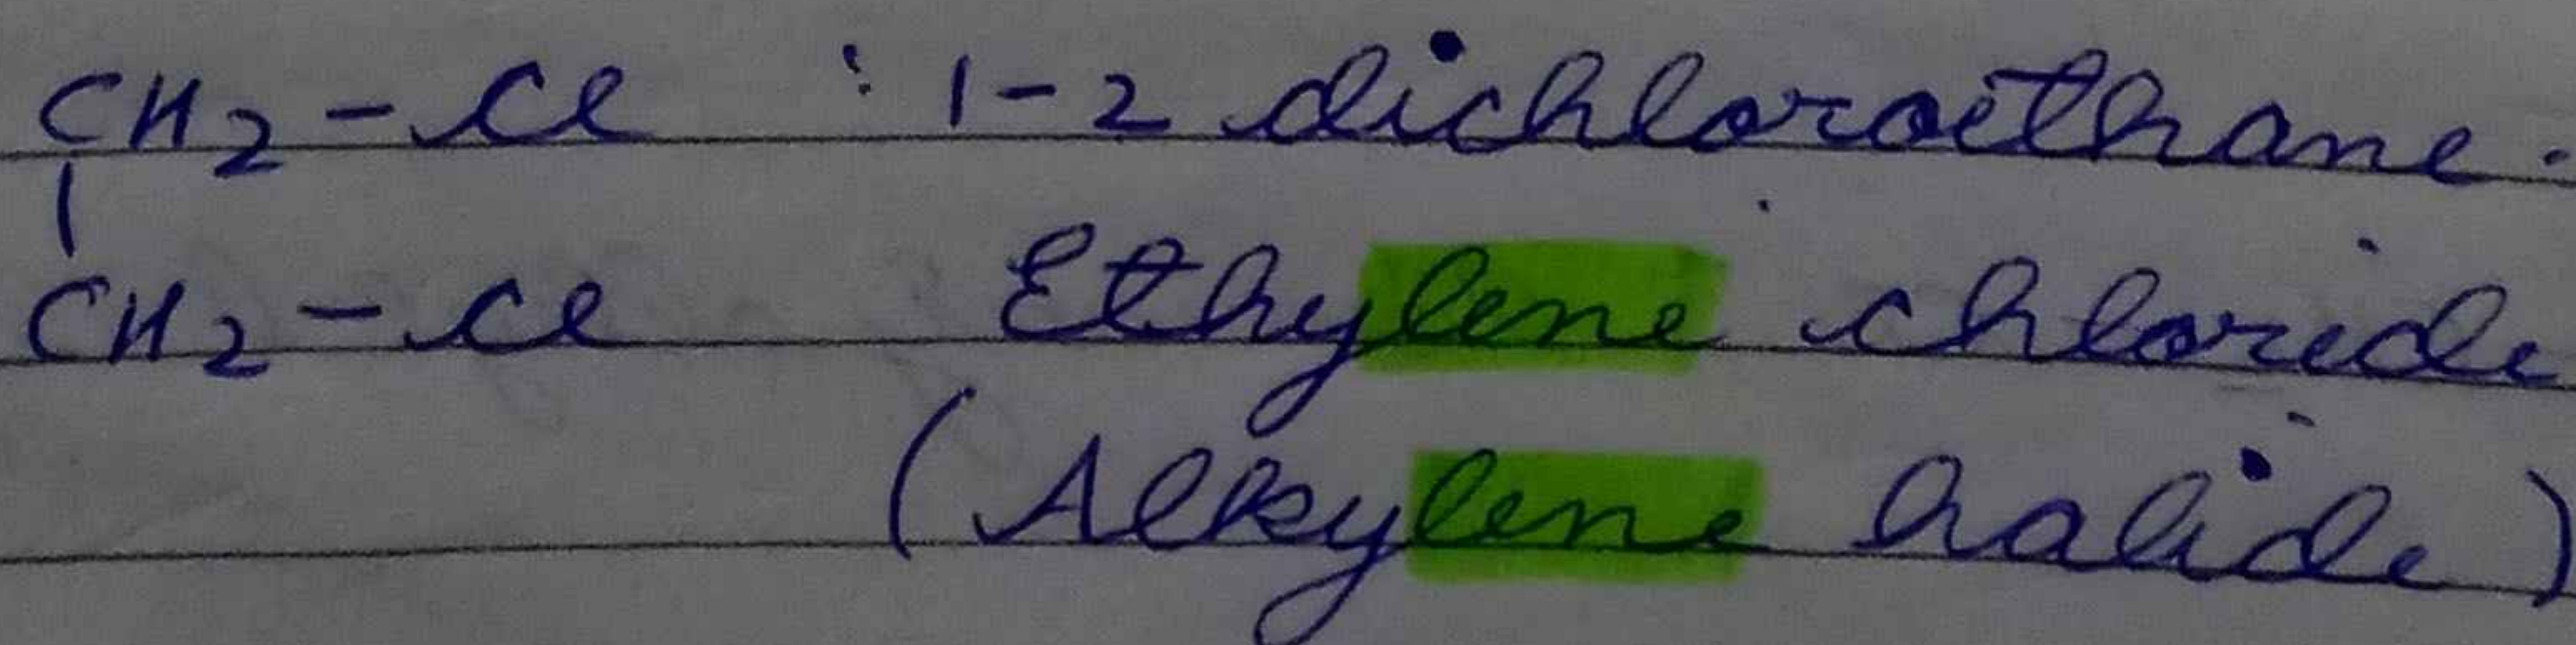 CH2 - Cl : 1-2 dichloroethane.
|
CH2 - Cl Ethylene chloride
(Alkylene halide)